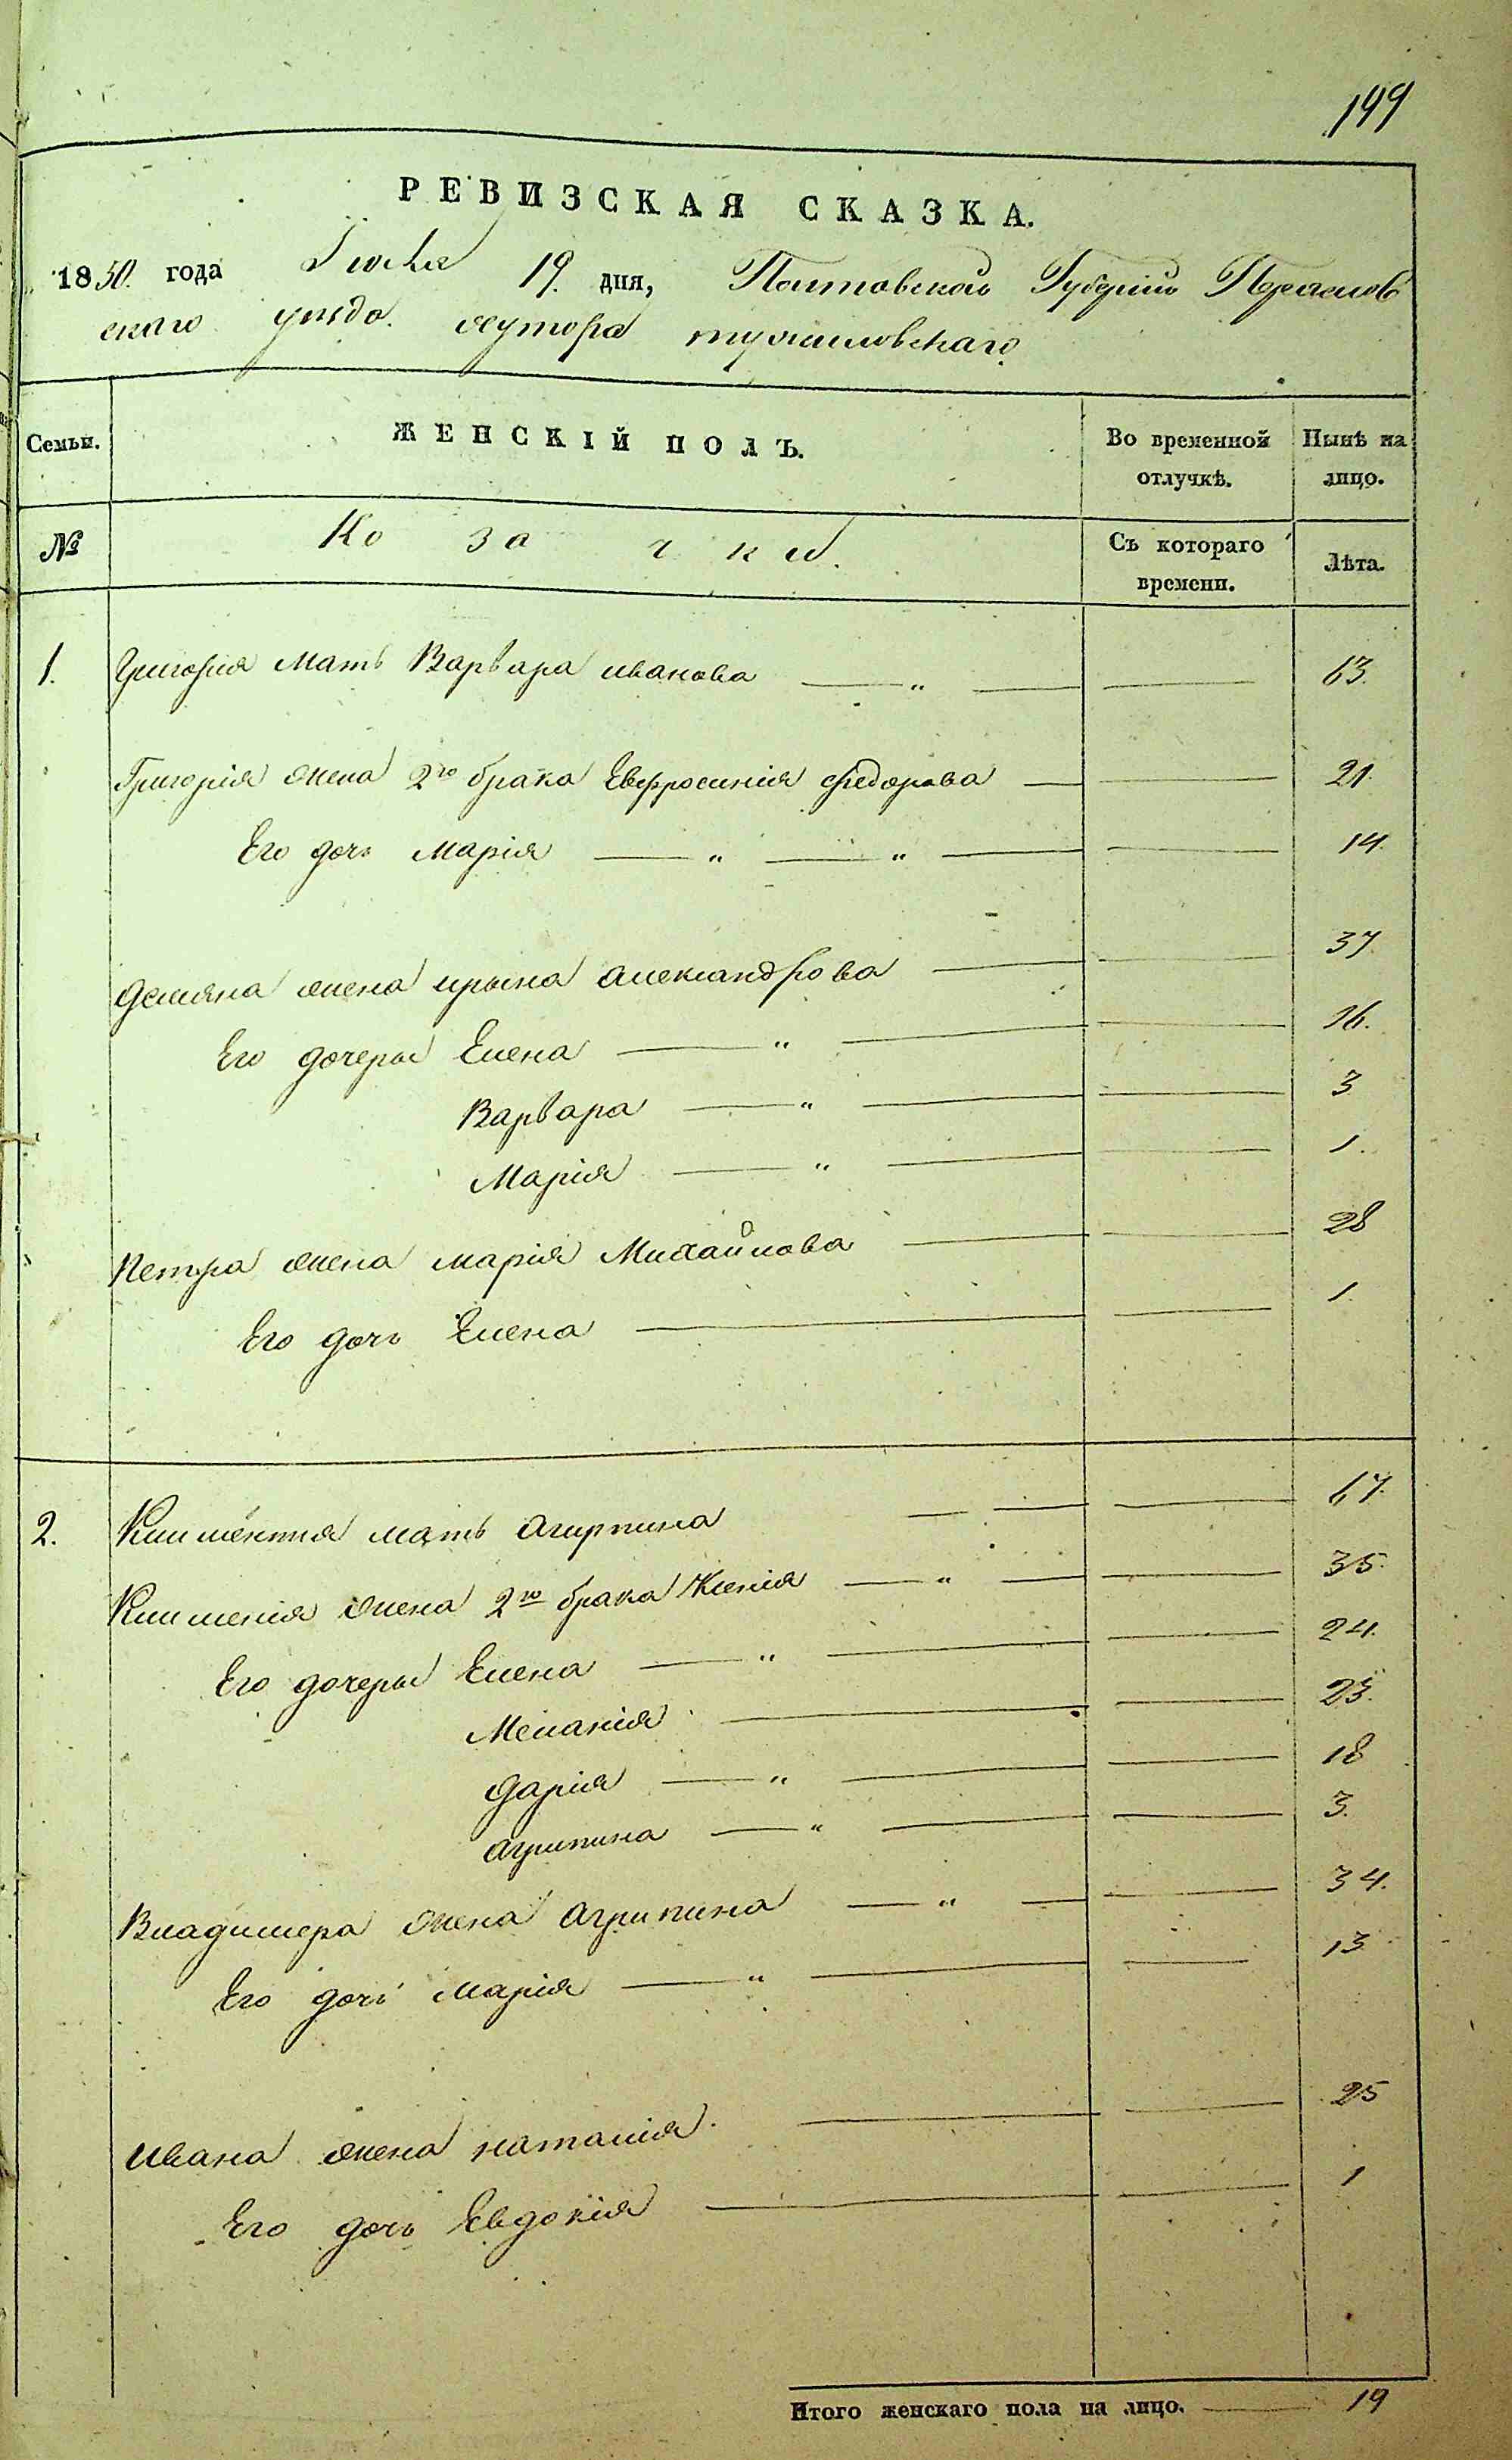 199
РЕВИЗСКАЯ СКАЗКА.
1850. года Июня 19. дня, Полтавской Губернии Переяслов
скаго уезда. хутора
Семьи.
ЖЕНСКІЙ ПОЛЪ.
Во временной отлучкѣ.
Нынѣ на лицо.
№
Ко за ч ки.
Съ котораго времени.
Лѣта.
1. Григория мать Варвара иванова — " — — 63.
Григорія жена 2го брака Евфросинія федорова — — 21.
Его дочь Марія — " — " — — 14.
Демяна жена ирына александрова — — 37.
Его дочеры Елена — " — — 16.
Варвара — " — — 3
Марія — " — — 1.
Петра жена марія Михайлова — — 28
Его дочь Елена — — 1.
2. Климентия мать агирпина — — — 67.
Климения жена 2го брака Ксенія — " — — 35.
Его дочеры Елена — " — — 24.
Меланія — — 23.
Дарія — " — — 18
агрипина — " — — 3.
Владимера жена агрипина — " — — 34.
Его дочь марія — " — — 13
ивана жена наталія. — — 25
Его дочь Евдокія — — 1
Итого женскаго пола на лицо. — 19